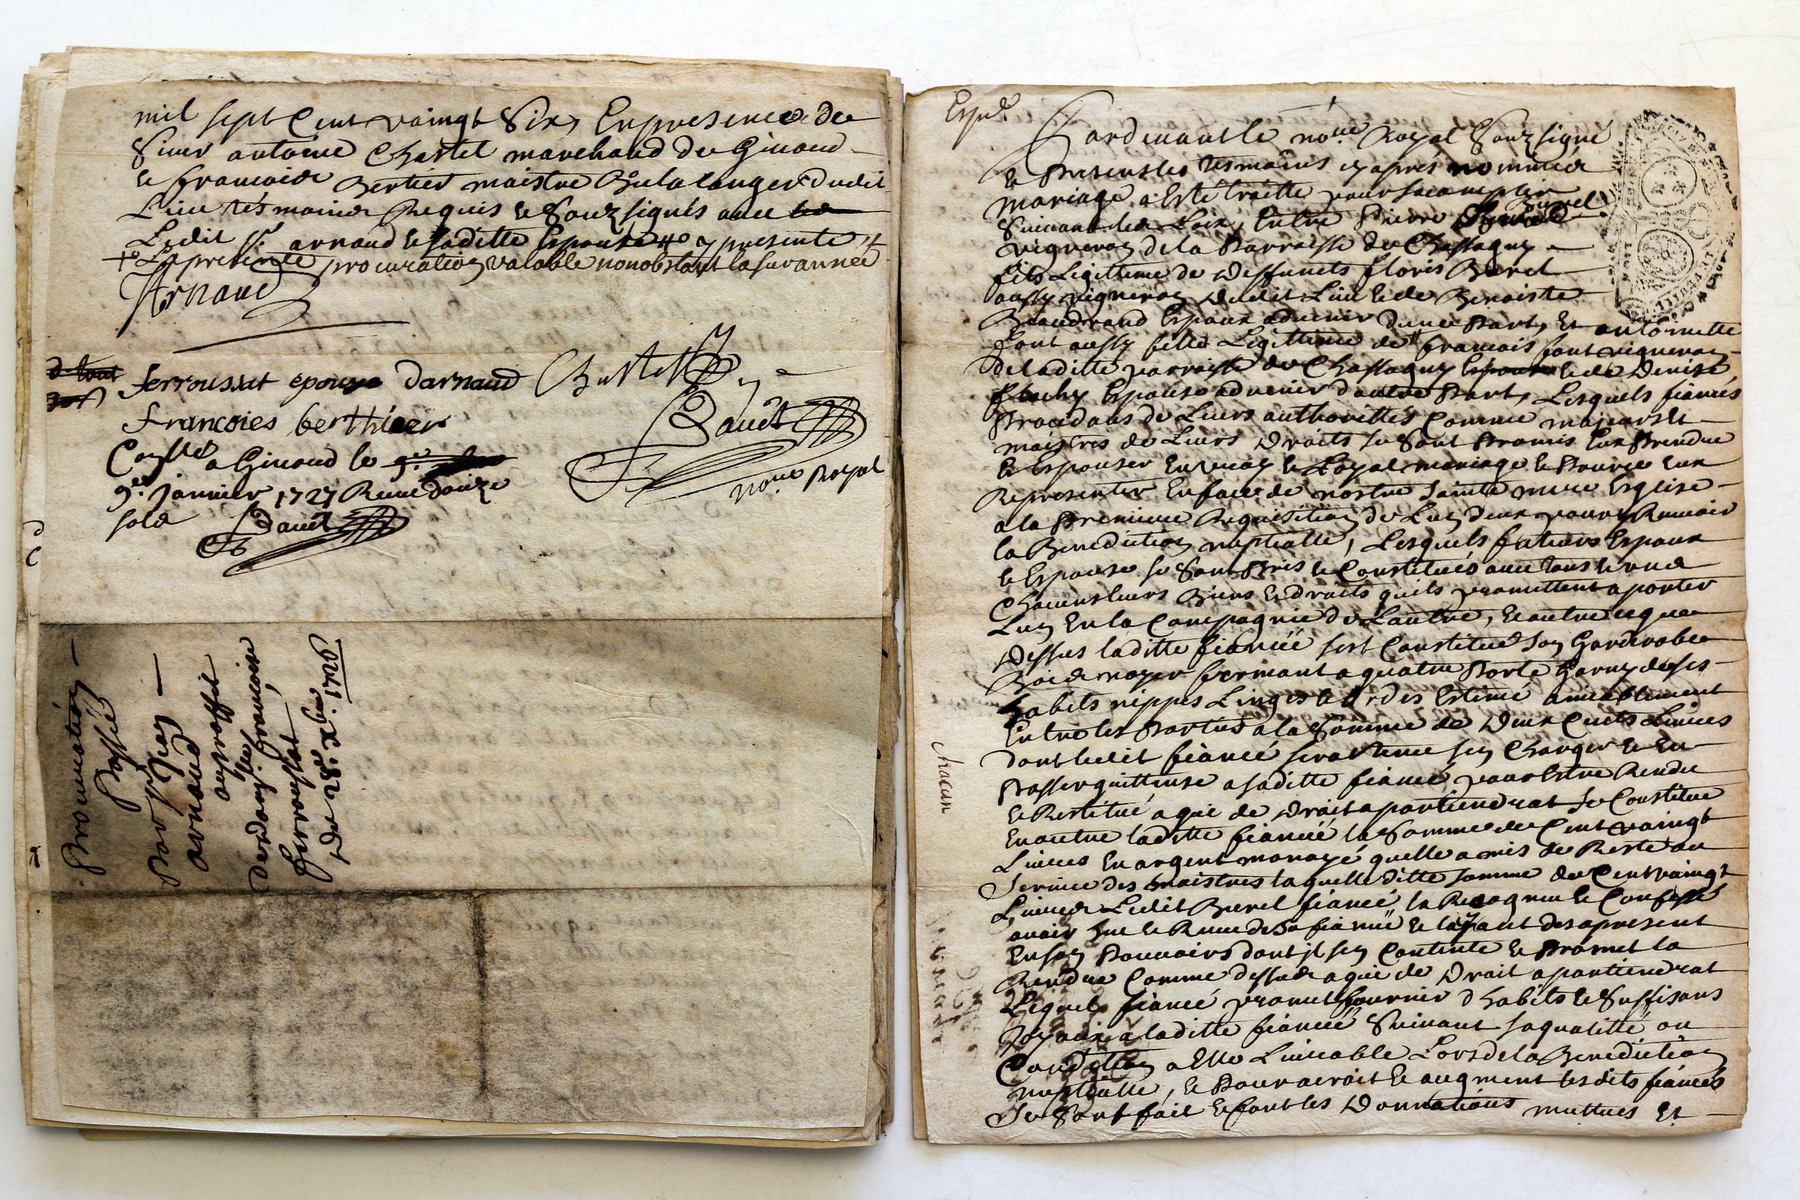 mil sept Cent vaingt Six, En presence de
Sieur antoine Chastel marchand de Givord
& francoids Bertier maistre Bulalanger dudit
Lieu tesmoins Requis & Souzsignés avec
Ledit Sr. arnaud & laditte Espouse
La presente procuration valable nonobstant la surannée
Arnaud
ferroussat epouze darnaud Chastel
francoies berthieer
Coollé a Givord le
9e. Janvier 1727 Receu douze
sold
Bauët
Bauët
nore. Royal
Procuration
Passée
Par Sr. Jean
arnaud
au proffit
de dam.lle francoise
ferroussat
Du 28e. Xbre. 1726
Expd.
Pardevant le nore. Royal Souzsigné
& Presents les tesmoins cy apres nommés
mariage a Esté traitté pour sacomplir
Suivant les Loix, Entre Pierre Burel
vigneron de la Parroisse de Chassagny
fils Legitime de deffuncts floris Burel
aussy vigneron dudit Lieu & de Benoiste
Beaudrand Espoux advenir d'une Part, Et antoinette
font aussy fille Legitime de francois font vigneron
de laditte parroisse de Chassagny & de Denise
flachy Espouse advenir d'autre Part, Lesquels fiancés
Procedans de Leurs authorittés Comme majeurs &
maistres de Leurs Droits se Sont Promis L'un Prendre
& Espouser En vray & Loyal mariage & Pource L'un
Representer En face de nostre Sainte mere Esglise
a la Premiere Requisition de L'un deux pour y Recevoir
la Benediction nuptialle, Lesquels futurs Espoux
& Espouse se Sont Pris & Constitués avec tous & uns
Chacuns leurs Biens & droits quils promettent aporter
L'un En la Compagnie de L'autre, & outre ce que
Dessus laditte fiancée sest Constitué Son Garderobe
Bois noyer fermant a quatre Porte Garny de ses
habits nippes Linges & hardes Estimé amiablement
Entre les Parties a la Somme de Deux Cents Livres
dont ledit fiancé sera tenu sen Charger & En
Passer quittance a saditte fiancée pour Estre Rendu
& Restitué a qui de Droit apartiendrat se Constitue
Enoutre laditte fiancée la Somme de Cent vaingt
Livres En argent monoyé quelle a mis de Reste au
Service des maistres laquelle ditte somme de Cent vaingt
Livres Ledit Burel fiancé la Recognu & Confessé
avoir Heu & Receu de Sa fiancée & layant des apresent
En son Pouvoirs dont il sen Contente & Promet la
Rendre Comme dessus a qui de Droit apartiendrat
Lequel fiancé promet fournir d'habits & Suffisans
Joyaux a laditte fiancée Suivant sa qualitté ou
Condition a Elle Livrable Lors de la Benediction
nuptialle, & Pour acroit & augment lesdits fiancés
Se Sont fait & font les Donnations mutues Et
chacun